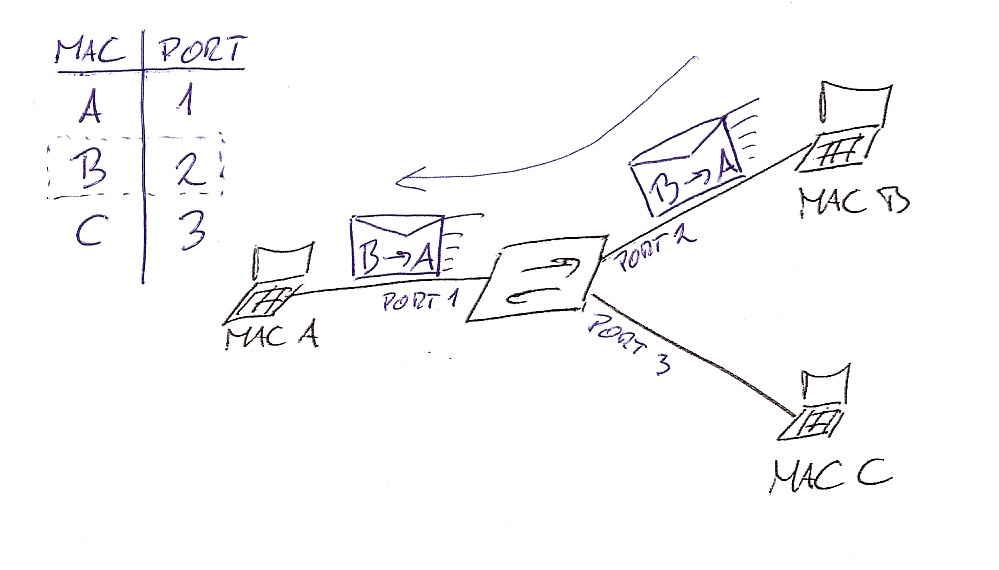 MAC PORT
A 1
B 2
C 3
B→A
MAC B
PORT 2
B→A
PORT 1
MAC A
PORT 3
MAC C